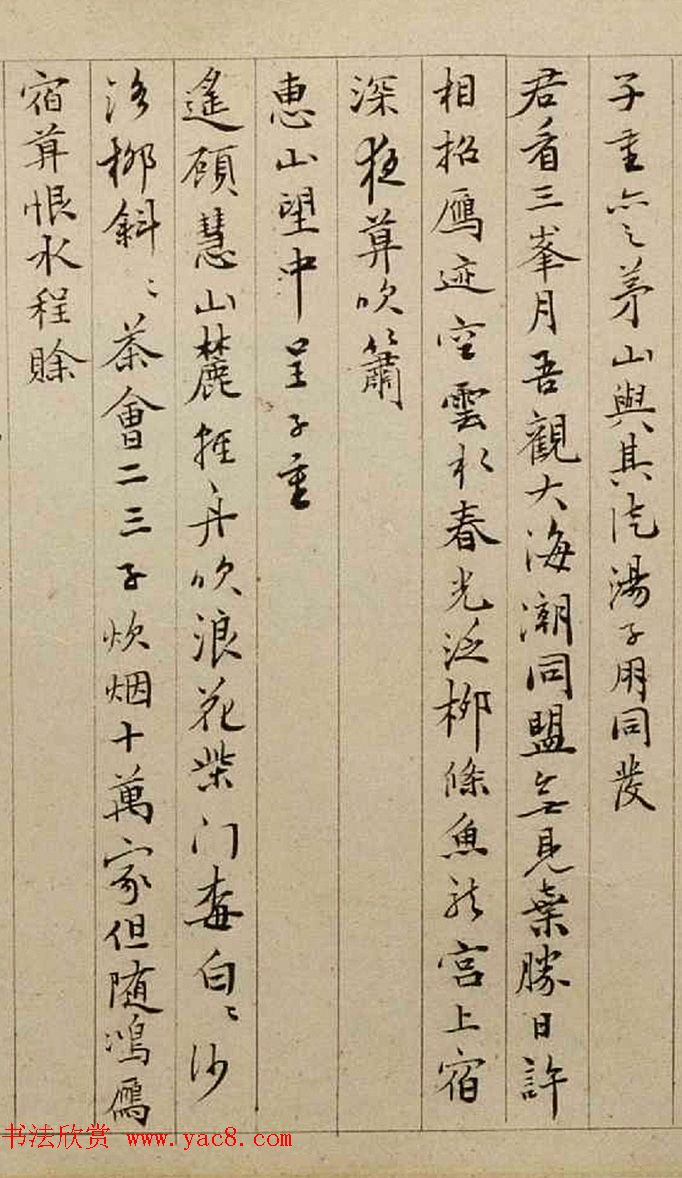 子重亦之茅山與其侄湯子用同發
君看三峯月吾觀大海潮同盟無見棄勝日許
相招鴈迹空雲水春光泛柳條魚龍宮上宿
深夜莫吹簫
惠山望中呈子重
遙碩慧山麓推舟吹浪花柴门杳白〻沙
洛柳斜〻茶會二三子炊烟十萬家但随鴻鴈
宿莫恨水程賒
书法欣赏 www.yac8.com